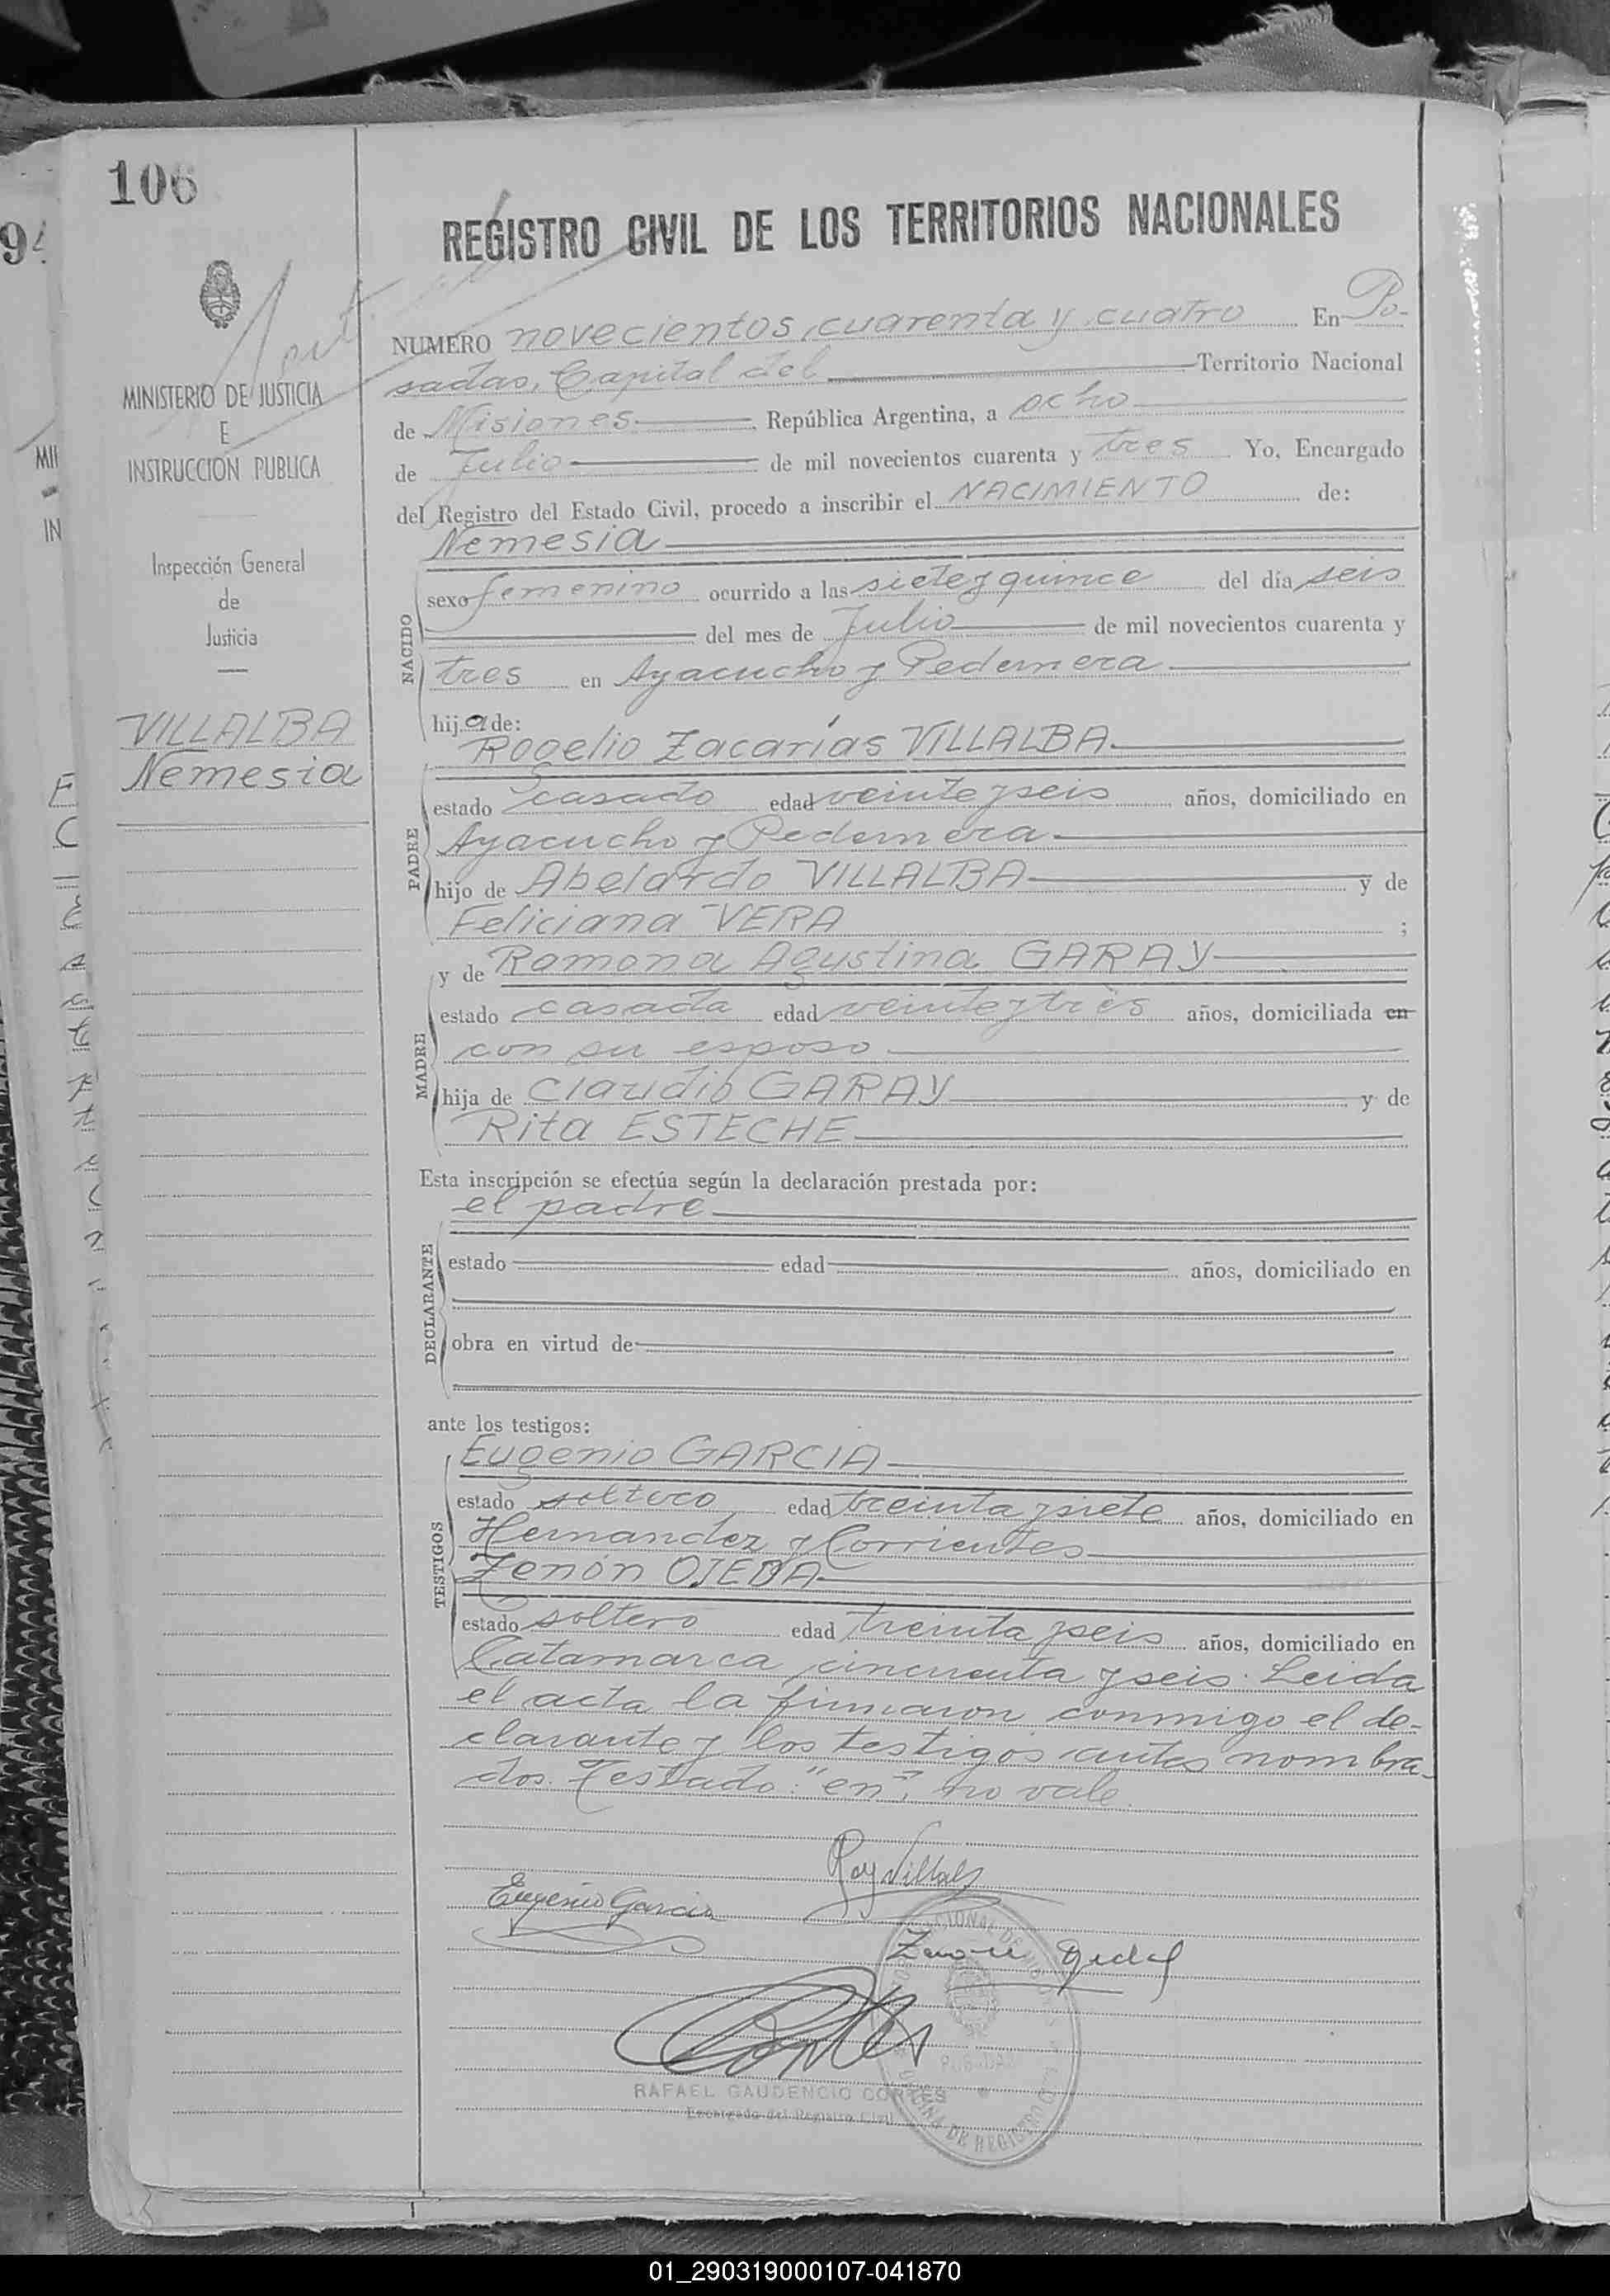 106
REGISTRO CIVIL DE LOS TERRITORIOS NACIONALES
MINISTERIO DE JUSTICIA
E
INSTRUCCION PUBLICA
Inspección General
de
Justicia
VILLALBA
Nemesia
NUMERO novecientos cuarenta y cuatro En Po-
sadas, Capital del Territorio Nacional
de Misiones República Argentina, a ocho
de Julio de mil novecientos cuarenta y tres Yo, Encargado
del Registro del Estado Civil, procedo a inscribir el NACIMIENTO de:
Nemesia
NACIDO
sexo femenino ocurrido a las siete y quince del día seis
del mes de Julio de mil novecientos cuarenta y
tres en Ayacucho y Pedernera
hija de:
Rogelio Zacarías VILLALBA
PADRE
estado casado edad veinte y seis años, domiciliado en
Ayacucho y Pedernera
hijo de Abelardo VILLALBA y de
Feliciana VERA ;
y de Ramona Agustina GARAY
MADRE
estado casada edad veinte y tres años, domiciliada en
con su esposo
hija de Claudio GARAY y de
Rita ESTECHE
Esta inscripción se efectúa según la declaración prestada por:
el padre
DECLARANTE
estado edad años, domiciliado en
obra en virtud de
ante los testigos:
Eugenio GARCIA
TESTIGOS
estado soltero edad treinta y siete años, domiciliado en
Hernandez y Corrientes
Zenón OJEDA
estado soltero edad treinta y seis años, domiciliado en
Catamarca cincuenta y seis. Leida
el acta la firmaron conmigo el de-
clarante y los testigos antes nombra-
dos. Testado: "en", no vale.
Eugenio Garcia
RAFAEL GAUDENCIO CORTES
Encargado del Registro Civil
01_290319000107-041870